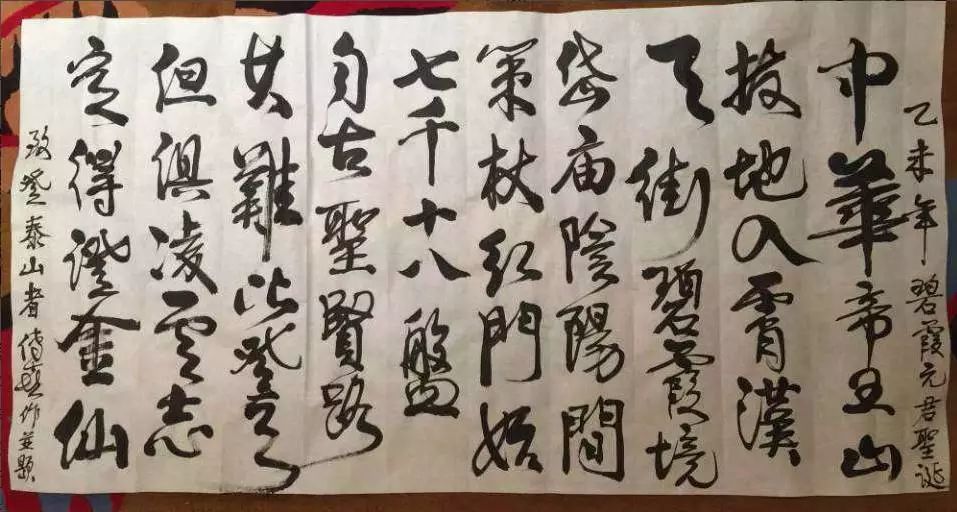 乙未年碧霞元君聖誕
中華帝王山
拔地入霄漢
天街碧霞境
岱庙陰陽間
策杖红門始
七千十八盤
自古聖賢路
其難比登天
但俱凌雲志
定得證金仙
致登泰山者傅作並題